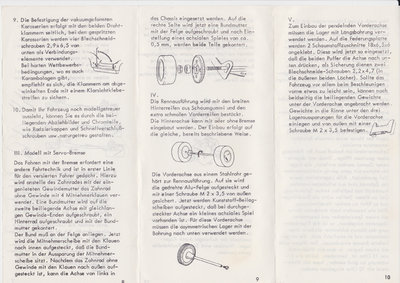 9. Die Befestigung der vakuumgeformten
Karosserien erfolgt mit den beiden Draht-
klammern seitlich, bei den gespritzten
Karosserien werden vier Blechschneid-
schrauben 2,9x6,5 von
unten als Verbindungs-
elemente verwendet.
Bei harten Wettbewerbs-
bedingungen, wo es auch
Karambolagen gibt,
empfiehlt es sich, die Klammern am abge-
winkelten Ende mit einem Klebstreifen
am streifen zu sichern.
10. Damit Ihr Fahrzeug noch modellgetreuer
aussieht, können Sie es durch die bei-
liegenden Abziehbilder und Chromteile,
wie Radzierkappen und Schnellverschluß-
schrauben usw. gestalten.
III. Modell mit Servo-Bremse
Das Fahren mit der Bremse erfordert eine
andere Fahrtechnik und ist in erster Linie
für den versierten Fahrer gedacht. Hierzu
wird anstelle des Zahnrades mit der ein-
genieteten Gewindemutter das Zahnrad
ohne Gewinde mit 4 Mitnehmerklauen ver-
wendet. Eine Bundmutter wird auf die
zweite beiliegende Achse mit gleichlan-
gen Gewinde-Enden aufgeschraubt, ein
Hinterrad aufgeschraubt und mit der Bund-
mutter gekontert.
Der Bund muß an der Felge anliegen. Jetzt
wird die Mitnehmerscheibe mit den Klauen
nach innen aufgesteckt, daß die Bund-
mutter in der Aussparung der Mitnehmer-
scheibe sitzt. Nachdem das Zahnrad ohne
Gewinde mit den Klauen nach außen auf-
gesteckt ist, kann die Achse von links in
8
das Chassis eingesetzt werden. Auf die
rechte Seite wird jetzt eine Bundmutter
mit der Felge aufgeschraubt und nach Ein-
stellung eines achsialen Spieles von ca.
0,5 mm, werden beide Teile gekontert.
IV.
Die Rennausführung wird mit den breiten
Hinterreifen aus Schaumgummi und den
extra schmalen Vorderreifen bestückt.
Die Hinterachse kann mit oder ohne Bremse
eingebaut werden. Der Einbau erfolgt auf
die gleiche, bereits beschriebene Weise.
Die Vorderachse aus einem Stahlrohr ge-
hört zur Rennausführung. Auf sie wird
die gedrehte Alu-Felge aufgesteckt und
mit einer Schraube M 2 x 3,5 von außen
gesichert. Jetzt werden Kunststoff-Beilag-
scheiben aufgesteckt, daß bei durchge-
steckter Achse ein kleines achsiales Spiel
vorhanden ist. Für diese Vorderachse
müssen die asymmetrischen Lager mit der
Bohrung nach unten verwendet werden.
9
V.
Zum Einbau der pendelnden Vorderachse
müssen die Lager mit Langbohrung ver-
wendet werden. Auf die Federungsstifte
werden 2 Schaumstoffzuschnitte
aufgesteckt. Das Lager wird jetzt so eingesetzt,
daß die beiden Puffer die Achse nach un-
ten drücken, als Sicherung dienen zwei
Blechschneide-Schrauben 2,2 x 4,7 (in
die äußeren beiden Löcher). Sollte das
Fahrzeug vor allem beim Beschleunigen
vorne etwas zu leicht sein, können noch
beidseitig die beiliegenden Gewichte
unter der Vorderachse angebracht werden.
Gewichte in die Rinne unter den drei
Lagerausparungen für die Vorderachse
einlegen und von außen mit einer
Schraube M 2 x 3,5 befestigen.
10